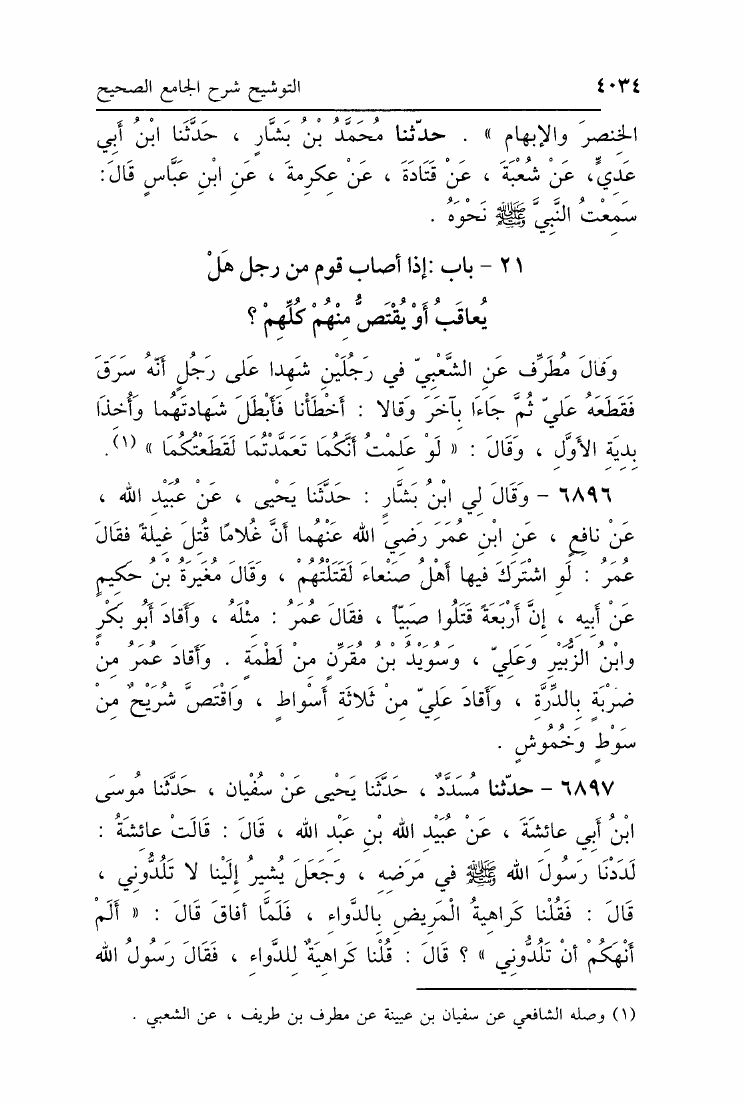 ٤٠٣٤ التوشيح شرح الجامع الصحيح
الخنصرَ والإبهام » . حدّثنا مُحَمَّدُ بْنُ بَشَّارٍ ، حَدَّثَنا ابْنُ أَبي
عَدِيٍّ، عَنْ شُعْبَةَ ، عَنْ قَتَادَةَ ، عَنْ عِكرِمةَ ، عَنِ ابْنِ عَبَّاسٍ قَالَ:
سَمِعْتُ النَّبِيَّ ﷺ نَحْوَهُ .
٢١ – باب :إذا أصاب قوم من رجل هَلْ
يُعاقَبُ أَوْ يُقْتَصُّ مِنْهُمْ كُلِّهِمْ ؟
وَقَالَ مُطَرِّف عَنِ الشَّعْبِيّ في رَجُلَيْنِ شَهِدا عَلى رَجُلٍ أَنّهُ سَرَقَ
فَقَطَعَهُ عَلِيّ ثُمَّ جَاءَا بِآخَرَ وَقالا : أَخْطَأْنا فَأَبْطَلَ شَهادتَهُما وَأُخِذَا
بِدِيَةِ الأوَّلِ ، وَقَالَ : « لَوْ عَلِمْتُ أَنَّكُمَا تَعَمَّدْتُمَا لَقَطَعْتُكُمَا » (١).
٦٨٩٦ – وَقَالَ لِي ابْنُ بَشَّارٍ : حَدَّثَنا يَحْيى ، عَنْ عُبَيْدِ الله ،
عَنْ نافِعٍ ، عَنِ ابْنِ عُمَرَ رَضِيَ الله عَنْهُما أَنَّ غُلامًا قُتِلَ غِيلةً فقَالَ
عُمَرُ : لَو اشْتَرَكَ فِيها أَهْلُ صَنْعاءَ لَقَتَلْتُهُمْ ، وَقَالَ مُغِيرَةُ بْنُ حَكِيمٍ
عَنْ أَبِيهِ ، إِنَّ أَرْبَعَةً قَتَلُوا صَبِيّاً ، فقَالَ عُمَرُ : مِثْلَهُ ، وَأَقادَ أَبُو بَكْرٍ
وابْنُ الزُّبَيْرِ وَعَلِيّ ، وَسُوَيْدُ بْنُ مُقَرِّنٍ مِنْ لَطْمَةٍ . وَأَقادَ عُمَرُ مِنْ
ضَرْبَةٍ بِالدِّرَّةِ ، وَأَقادَ عَلِيّ مِنْ ثَلاثَةِ أَسْواطٍ ، وَاقْتَصَّ شُرَيْحٌ مِنْ
سَوْطٍ وَخُمُوشٍ .
٦٨٩٧ – حدّثنا مُسَدَّدٌ ، حَدَّثَنا يَحْيى عَنْ سُفْيان ، حَدَّثنا مُوسَى
ابْنُ أَبي عائشَةَ ، عَنْ عُبَيْدِ الله بْنِ عَبْدِ الله ، قَالَ : قَالَتْ عائشَةُ :
لَدَدْنَا رَسُولَ الله ﷺ في مَرَضِهِ ، وَجَعَلَ يُشِيرُ إلَيْنا لا تَلُدُّوني ،
قَالَ : فَقُلْنا كَراهيةُ الْمَرِيضِ بِالدَّواءِ ، فَلَمَّا أفاقَ قَالَ : « أَلَمْ
أَنْهَكُمْ أنْ تَلُدُّونِي » ؟ قَالَ : قُلْنا كَراهِيَةٌ لِلدَّواءِ ، فَقَالَ رَسُولُ الله
(١) وصله الشافعي عن سفيان بن عيينة عن مطرف بن طريف ، عن الشعبي .